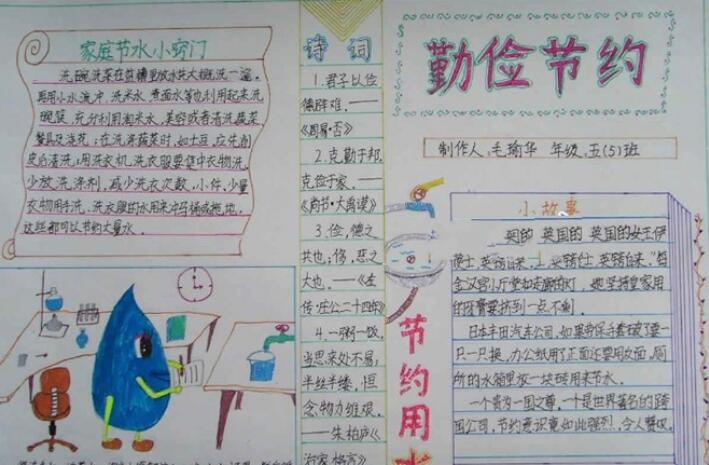 家庭节水小窍门
洗碗洗菜在盆槽里放水大概洗一遍。
再用小水流冲，洗米水、煮面水等也利用起来洗
碗筷，充分利用淘米水，
餐具及浇花；在洗涤蔬菜时，如土豆，应先削
皮后清洗；用洗衣机洗衣服要集中衣物洗，
少放洗涤剂，减少洗衣次数，小件、少量
衣物用手洗。洗衣服的水用来冲马桶或拖地，
这些都可以节约大量水。
诗词
1.君子以俭
德辟难。——
《周易·否》
2.克勤于邦，
克俭于家。——
《尚书·大禹谟》
3.俭，德之
共也；侈，恶之
大也。——《左
传·庄公二十四年》
4.一粥一饭，
当思来处不易；
半丝半缕，恒
念物力维艰。
——朱柏庐《
治家格言》
勤俭节约
制作人：毛瑜华 年级：五(5)班
节约用水
小故事
英国的 英国的女王伊
她坚持皇家用
的牙膏要挤到一点不剩。
日本丰田汽车公司，如果劳保手套破了要一
只一只换，办公纸用了正面还要用反面，厕
所的水箱里放一块砖用来节水。
一个贵为一国之尊，一个是世界著名的跨
国公司，节约意识竟如此强烈，令人赞叹。